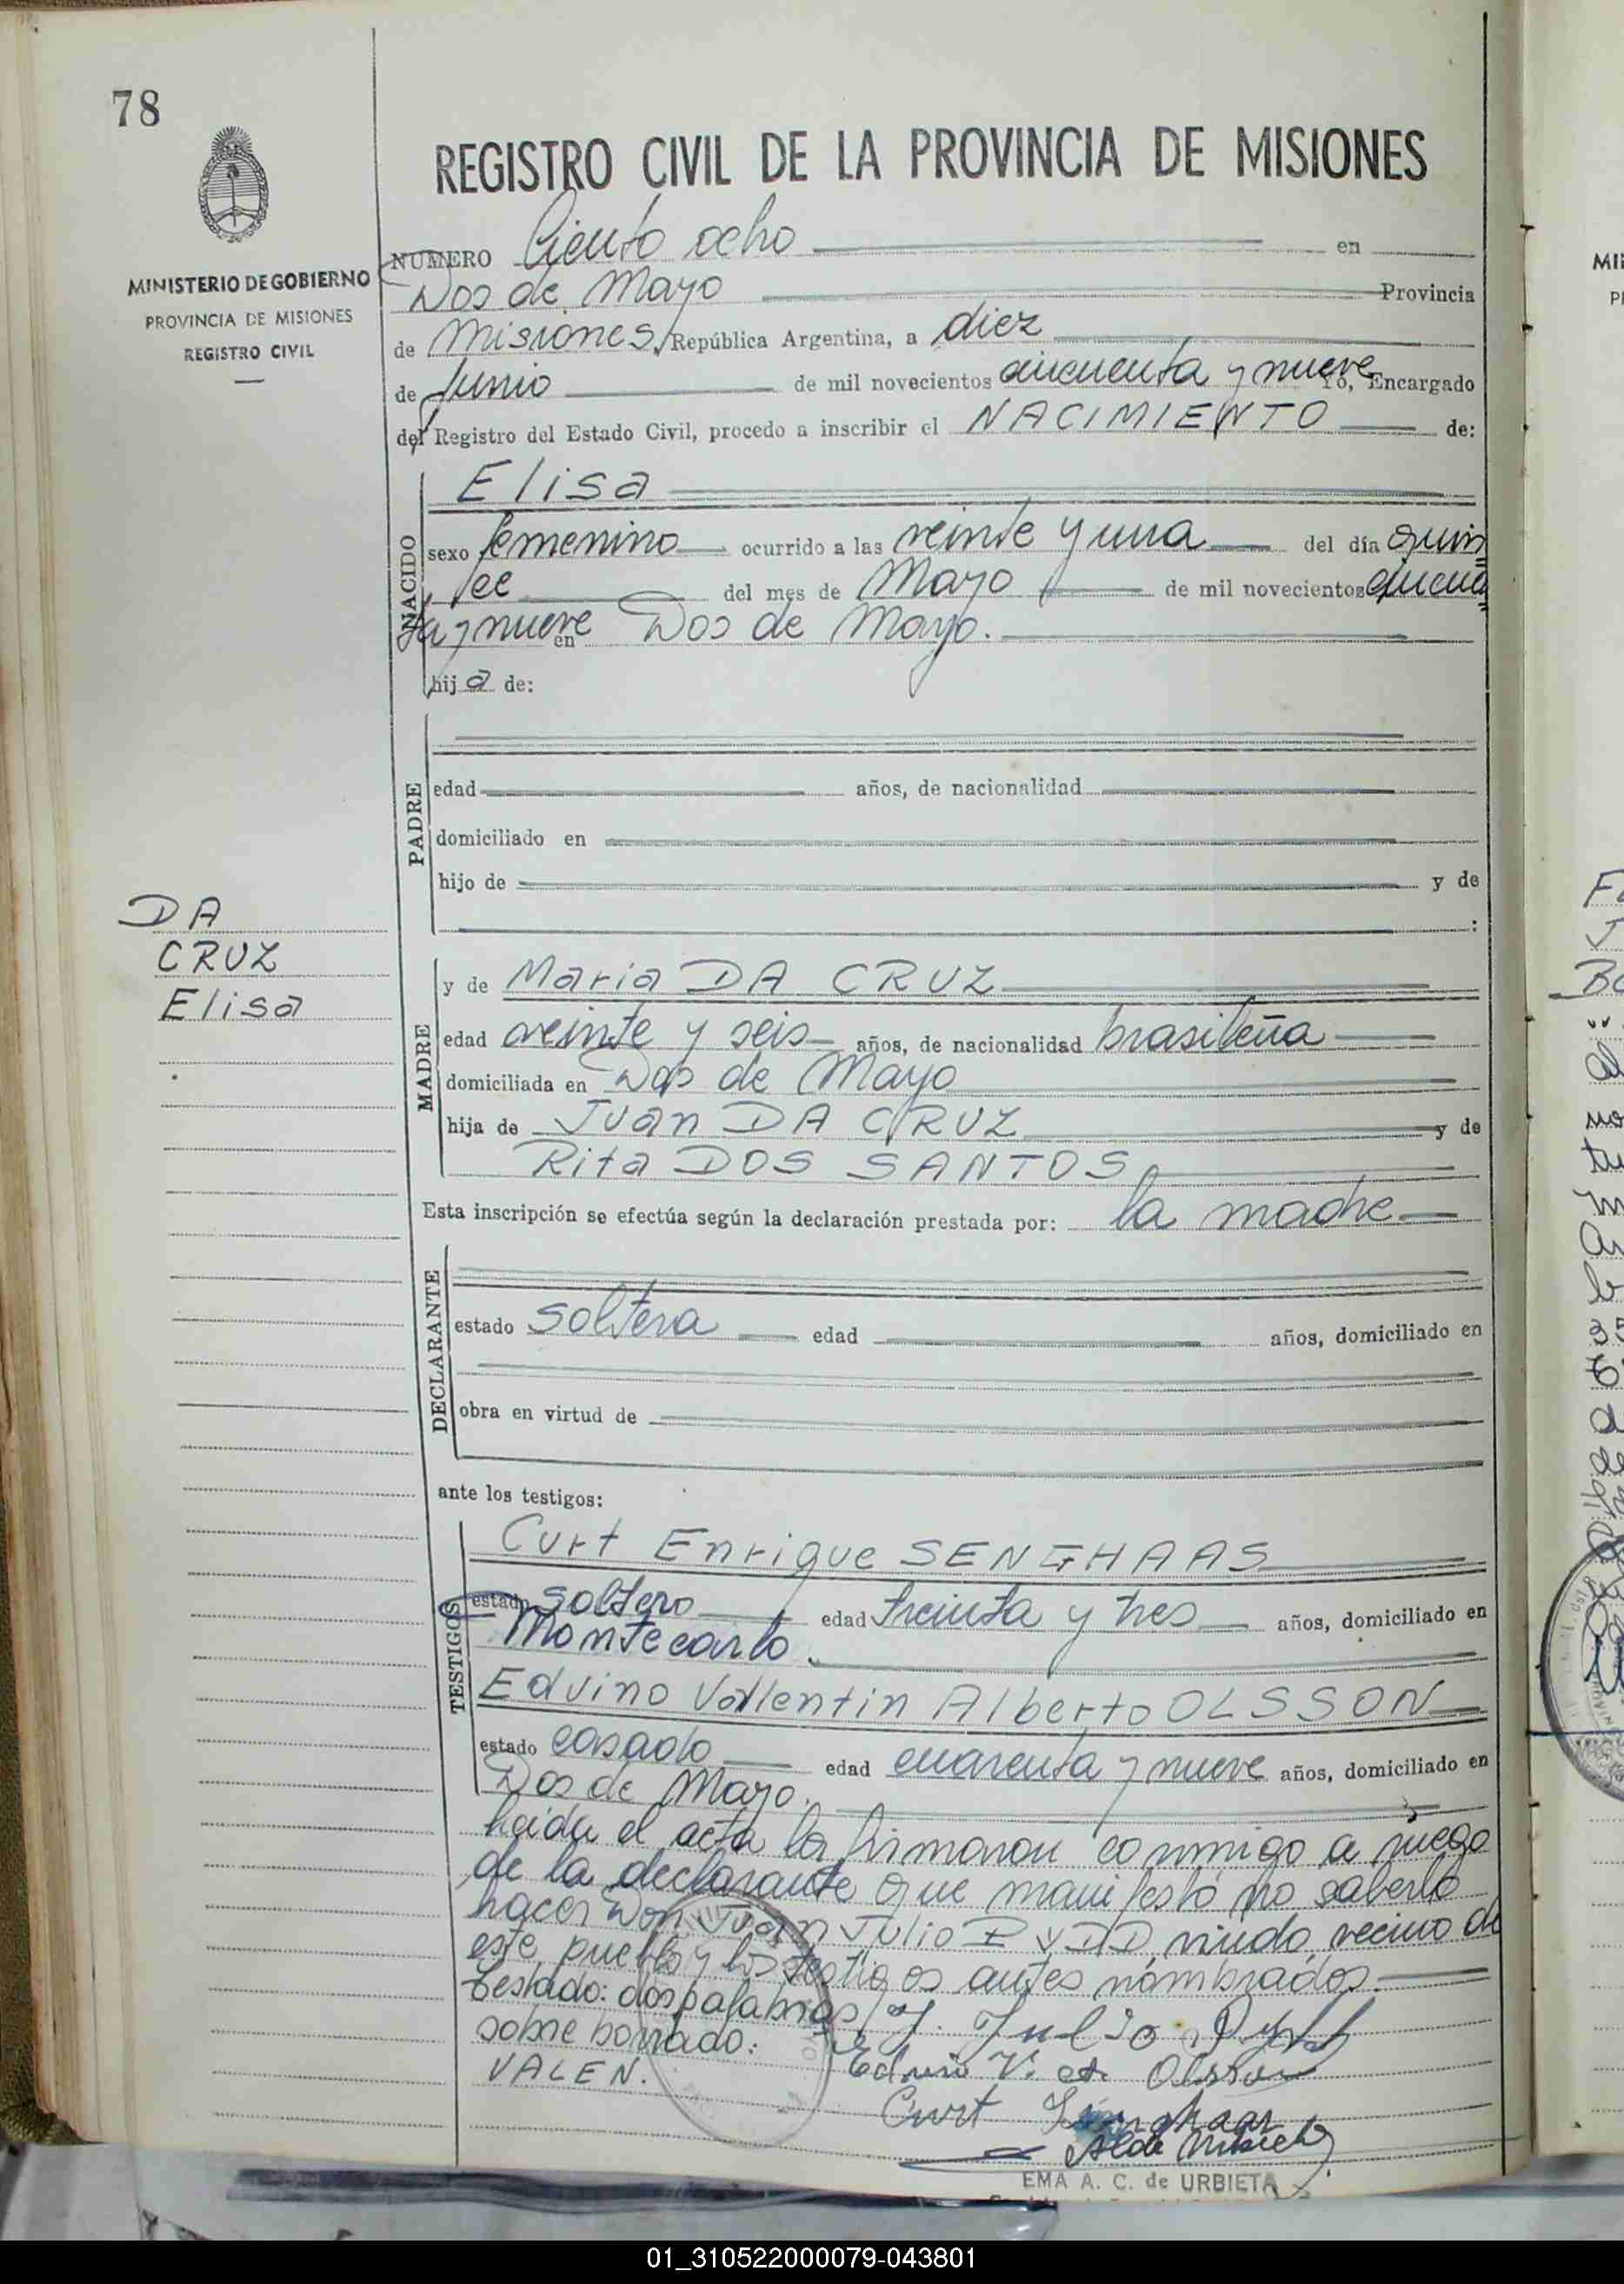 78
MINISTERIO DE GOBIERNO
PROVINCIA DE MISIONES
REGISTRO CIVIL
REGISTRO CIVIL DE LA PROVINCIA DE MISIONES
NUMERO Ciento ocho en
Dos de Mayo Provincia
de Misiones, República Argentina, a diez
de Junio de mil novecientos cincuenta y nueve Yo, Encargado
del Registro del Estado Civil, procedo a inscribir el NACIMIENTO de:
NACIDO
Elisa
sexo femenino ocurrido a las veinte y una del día quin
ce del mes de Mayo de mil novecientos cincuen
ta y nueve en Dos de Mayo.
hija de:
PADRE
edad años, de nacionalidad
domiciliado en
hijo de y de
:
DA
CRUZ
Elisa
MADRE
y de Maria DA CRUZ
edad veinte y seis años, de nacionalidad brasileña
domiciliada en Dos de Mayo
hija de Juan DA CRUZ y de
Rita DOS SANTOS
Esta inscripción se efectúa según la declaración prestada por: la madre
DECLARANTE
estado soltera edad años, domiciliado en
obra en virtud de
ante los testigos:
TESTIGOS
Curt Enrique SENGHAAS
estado soltero edad treinta y tres años, domiciliado en
Montecarlo.
Edvino Vallentin Alberto OLSSON
estado casado edad cuarenta y nueve años, domiciliado en
Dos de Mayo.
Leida el acta la firmaron conmigo a ruego
de la declarante que manifestó no saberlo
hacer Don Juan Julio RYDD, viudo, vecino de
este pueblo y los testigos antes nombrados.
Testado: dos palabras
sobre borrado:
VALEN.
J. Julio
Edvino V. A. Olsson
Curt Senghaas
EMA A. C. de URBIETA
01_310522000079-043801